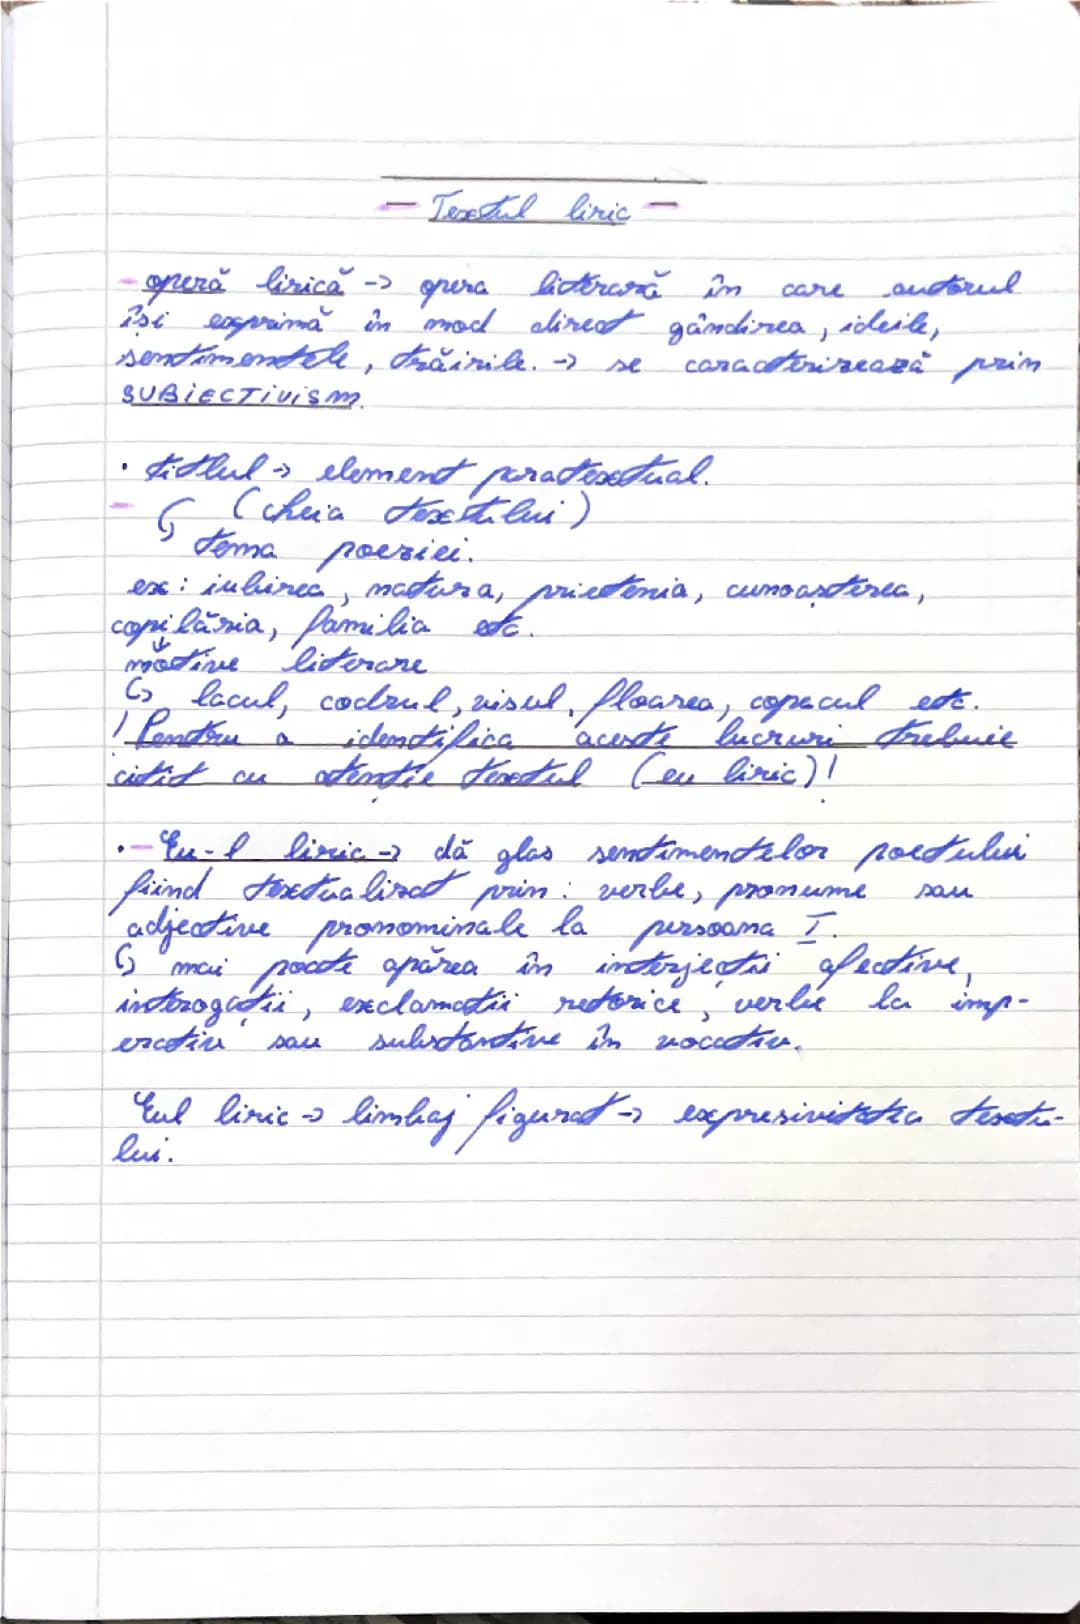 - Textul liric -
- operă lirică -> opera literară în care autorul
își exprimă în mod direct gândirea, ideile,
sentimentele, trăirile. -> se caracterizează prin
SUBIECTIVISM.
• titlul -> element paratextual.
- ↳ (cheia textului)
tema poeziei.
ex: iubirea, natura, prietenia, cunoașterea,
copilăria, familia etc.
↓
motive literare
↳ lacul, codrul, visul, floarea, copacul etc.
! Pentru a identifica aceste lucruri trebuie
citit cu atenție textul (eu liric)!
• - Eu-l liric -> dă glas sentimentelor poetului
fiind textualizat prin: verbe, pronume sau
adjective pronominale la persoana I.
↳ mai poate apărea în interjecții afective,
interogații, exclamații retorice, verbe la imp-
erativ sau substantive în vocativ.
Eul liric -> limbaj figurat -> expresivitatea textu-
lui.